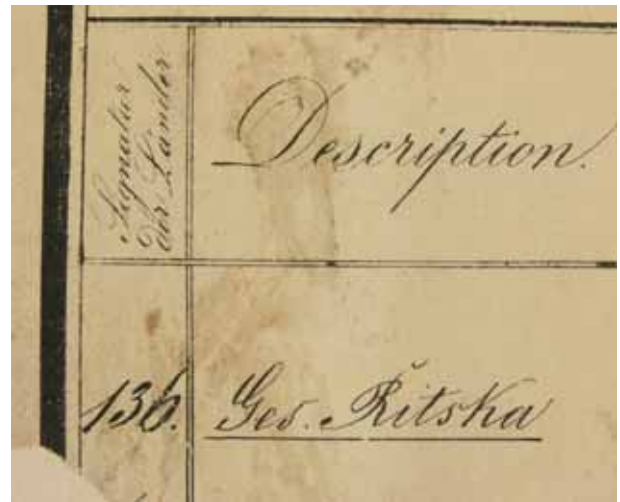 Signatur
der Länder
Description.
136. Ges. Ritska